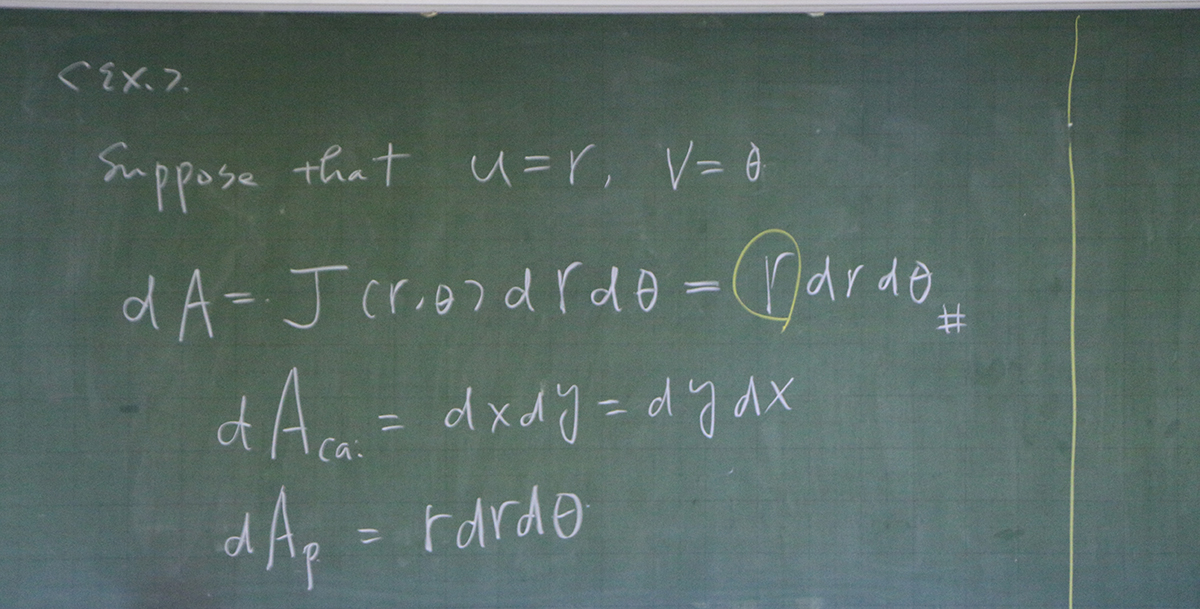 <Ex.>.
Suppose that u=r, v=θ
dA = J(r,θ)drdθ = r drdθ #
dA ca. = dxdy = dydx
dA p = rdrdθ